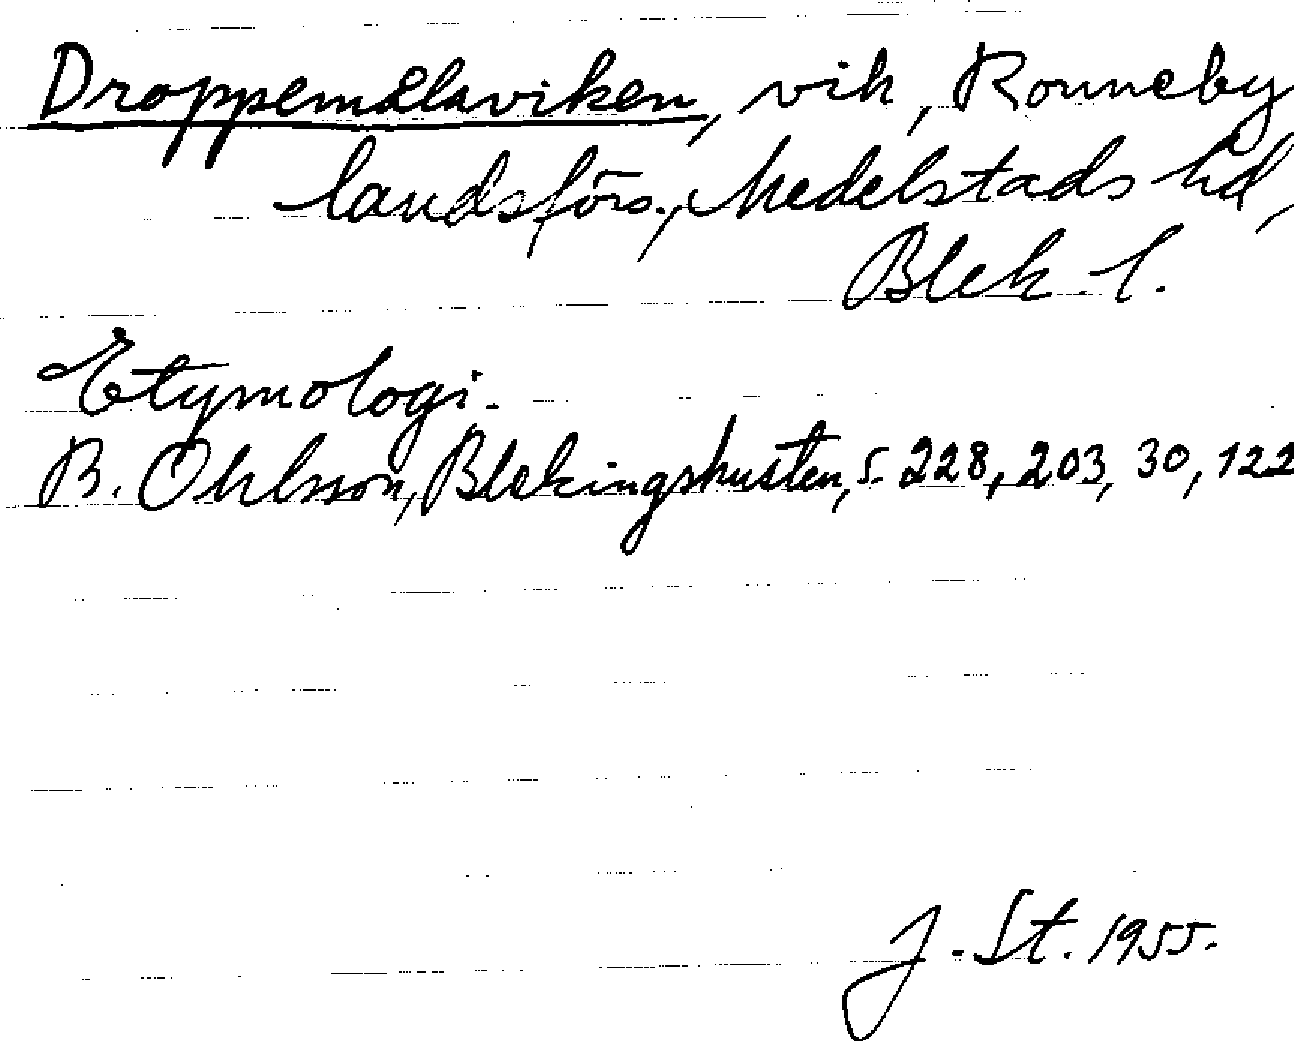 Droppemålaviken, vik, Ronneby
landsförs., Medelstads hd,
Blek. l.
Etymologi.
B. Ohlsson, Blekingskusten, s. 228, 203, 30, 122
J. St. 1955.